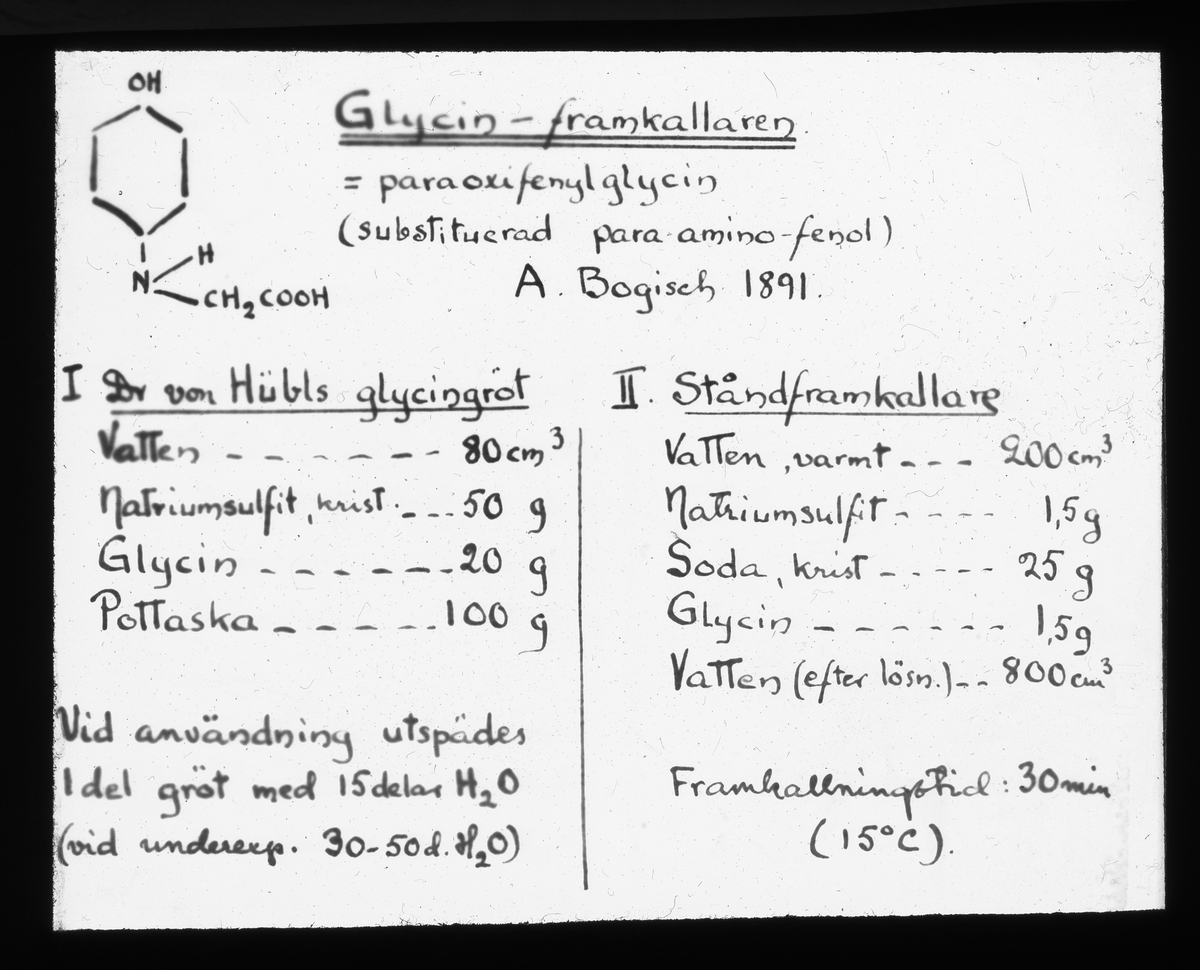 OH
N
H
CH2COOH
Glycin - framkallaren.
= paraoxifenylglycin
(substituerad para-amino-fenol)
A. Bogisch 1891.
I Dr von Hübls glycingröt
Vatten – – – – – – 80 cm³
Natriumsulfit, krist. – – – 50 g
Glycin – – – – – – 20 g
Pottaska – – – – – 100 g
Vid användning utspädes
1 del gröt med 15 delar H2O
(vid underexp. 30-50 d. H2O)
II. Ståndframkallare
Vatten, varmt – – – 200 cm³
Natriumsulfit – – – – 1,5 g
Soda, krist – – – – – 25 g
Glycin – – – – – – 1,5 g
Vatten (efter lösn.) – – 800 cm³
Framkallningstid: 30 min
(15°C).